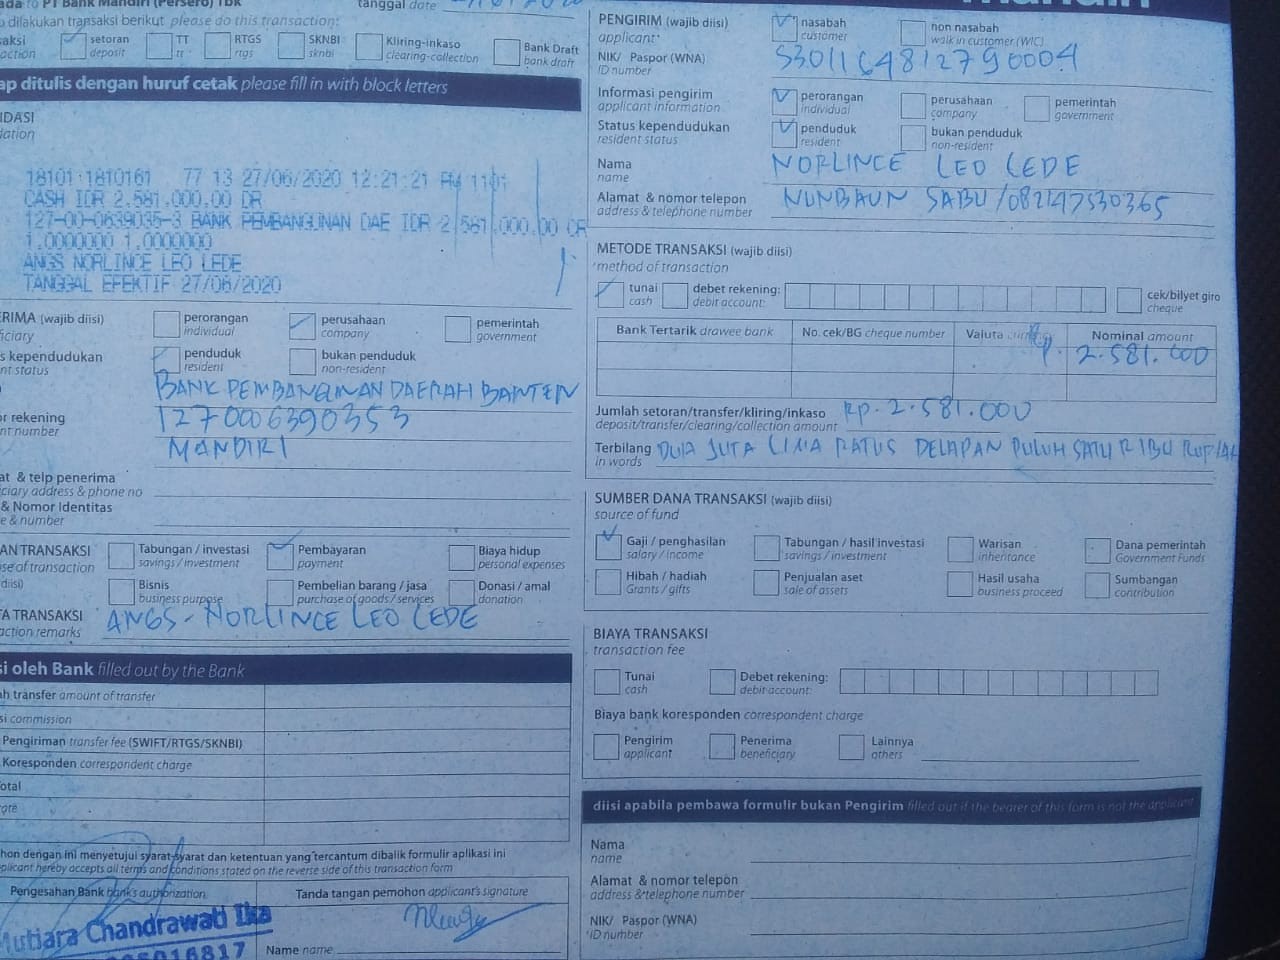 PT Bank Mandiri (Persero) Tbk
tanggal date
dilakukan transaksi berikut please do this transaction:
setoran deposit
TT tt
RTGS rtgs
SKNBI sknbi
Kliring-inkaso clearing-collection
Bank Draft bank draft
ditulis dengan huruf cetak please fill in with block letters
18101 1810161 77 13 27/06/2020 12:21:21 PM 1101
CASH IDR 2.581.000.00 DR
127-00-0639035-3 BANK PEMBANGUNAN DAE IDR 2.581.000.00 CR
1.0000000 1.0000000
ANGS NORLINCE LEO LEDE
TANGGAL EFEKTIF 27/06/2020
(wajib diisi)
perorangan individual
perusahaan company
pemerintah government
kependudukan
penduduk resident
bukan penduduk non-resident
BANK PEMBANGUNAN DAERAH BANTEN
rekening
number
1270006390353
MANDIRI
& telp penerima
address & phone no
& Nomor Identitas
& number
TRANSAKSI
of transaction
Tabungan / investasi savings / investment
Pembayaran payment
Biaya hidup personal expenses
Bisnis business purpose
Pembelian barang / jasa purchase of goods / services
Donasi / amal donation
TRANSAKSI
remarks
ANGS - NORLINCE LEO LEDE
oleh Bank filled out by the Bank
transfer amount of transfer
commission
Pengiriman transfer fee (SWIFT/RTGS/SKNBI)
Koresponden correspondent charge
dengan ini menyetujui syarat-syarat dan ketentuan yang tercantum dibalik formulir aplikasi ini
hereby accepts all terms and conditions stated on the reverse side of this transaction form
Pengesahan Bank bank's authorization
Tanda tangan pemohon applicant's signature
Mutiara Chandrawati Ika
Name name
PENGIRIM (wajib diisi)
applicant
nasabah customer
non nasabah walk in customer (WIC)
NIK/ Paspor (WNA)
ID number
5301164812790004
Informasi pengirim
applicant information
perorangan individual
perusahaan company
pemerintah government
Status kependudukan
resident status
penduduk resident
bukan penduduk non-resident
Nama
name
NORLINCE LEO LEDE
Alamat & nomor telepon
address & telephone number
NUNBAUN SABU /082147530365
METODE TRANSAKSI (wajib diisi)
method of transaction
tunai cash
debet rekening: debit account:
cek/bilyet giro cheque
Bank Tertarik drawee bank
No. cek/BG cheque number
Valuta
Nominal amount
Rp. 2.581.000
Jumlah setoran/transfer/kliring/inkaso
deposit/transfer/clearing/collection amount
Rp. 2.581.000
Terbilang
in words
DUA JUTA LIMA RATUS DELAPAN PULUH SATU RIBU RUPIAH
SUMBER DANA TRANSAKSI (wajib diisi)
source of fund
Gaji / penghasilan salary / income
Tabungan / hasil investasi savings / investment
Warisan inheritance
Dana pemerintah Government Funds
Hibah / hadiah Grants / gifts
Penjualan aset sale of assets
Hasil usaha business proceed
Sumbangan contribution
BIAYA TRANSAKSI
transaction fee
Tunai cash
Debet rekening: debit account:
Biaya bank koresponden correspondent charge
Pengirim applicant
Penerima beneficiary
Lainnya others
diisi apabila pembawa formulir bukan Pengirim filled out if the bearer of this form is not the applicant
Nama
name
Alamat & nomor telepon
address & telephone number
NIK/ Paspor (WNA)
ID number